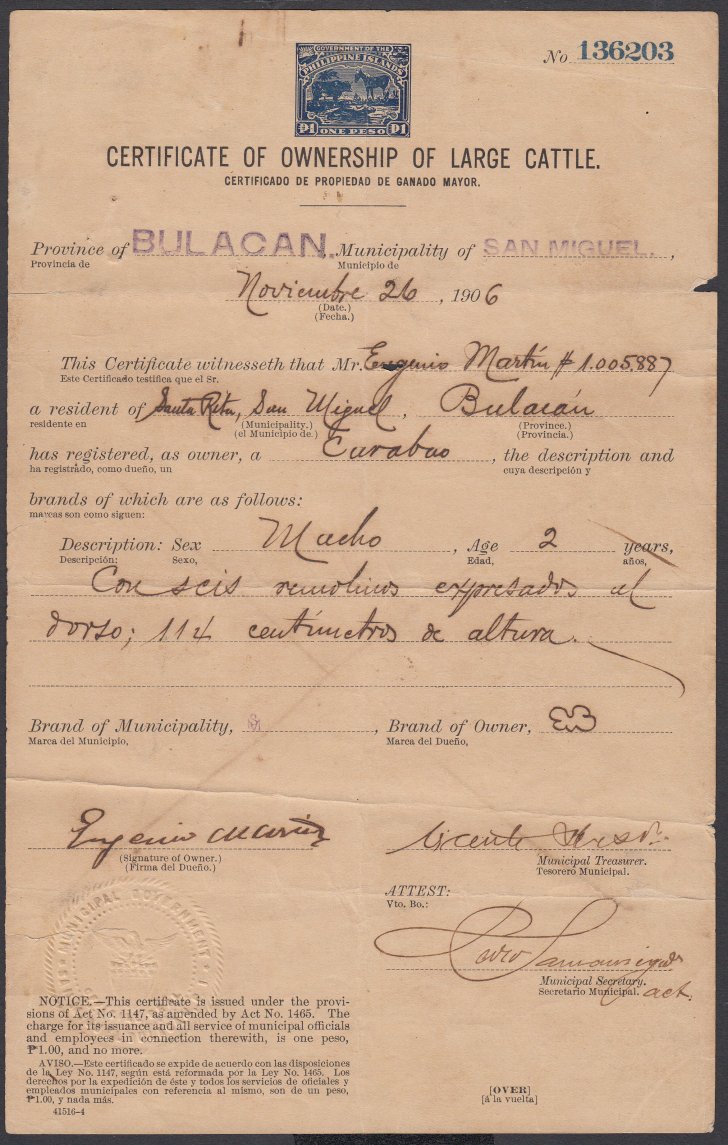 No. 136203
GOVERNMENT OF THE
PHILIPPINE ISLANDS
₱1 ONE PESO ₱1
CERTIFICATE OF OWNERSHIP OF LARGE CATTLE.
CERTIFICADO DE PROPIEDAD DE GANADO MAYOR.
Province of BULACAN, Municipality of SAN MIGUEL.,
Provincia de Municipio de
Noviembre 26, 1906
(Date.)
(Fecha.)
This Certificate witnesseth that Mr. Eugenio Martin # 1.005.887
Este Certificado testifica que el Sr.
a resident of Santa Rita, San Miguel, Bulacán
residente en (Municipality.) (Province.)
(el Municipio de.) (Provincia.)
has registered, as owner, a Carabao, the description and
ha registrado, como dueño, un cuya descripción y
brands of which are as follows:
marcas son como siguen:
Description: Sex Macho, Age 2 years,
Descripción: Sexo, Edad, años,
Con seis remolinos expresados al
dorso; 114 centímetros de altura.
Brand of Municipality, , Brand of Owner,
Marca del Municipio, Marca del Dueño,
Eugenio Martin
(Signature of Owner.)
(Firma del Dueño.)
Vicente
Municipal Treasurer.
Tesorero Municipal.
ATTEST:
Vto. Bo.:
Municipal Secretary.
Secretario Municipal. act.
MUNICIPAL GOVERNMENT
NOTICE.—This certificate is issued under the provi-
sions of Act No. 1147, as amended by Act No. 1465. The
charge for its issuance and all service of municipal officials
and employees in connection therewith, is one peso,
₱1.00, and no more.
AVISO.—Este certificado se expide de acuerdo con las disposiciones
de la Ley No. 1147, según está reformada por la Ley No. 1465. Los
derechos por la expedición de éste y todos los servicios de oficiales y
empleados municipales con referencia al mismo, son de un peso,
₱1.00, y nada más.
41516-4
[OVER]
[á la vuelta]